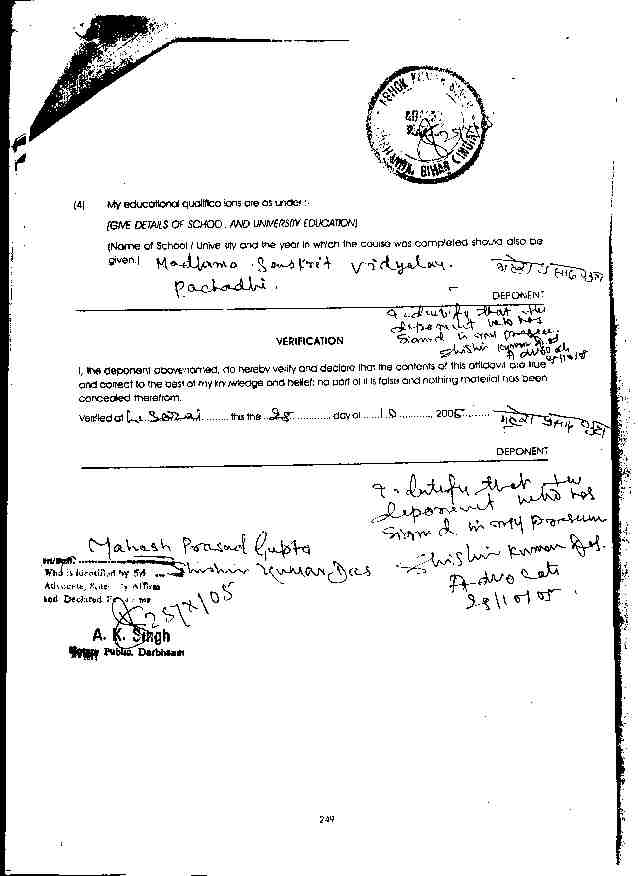 ASHOK
BIHAR (INDIA)
(4) My educational qualifica ions are as under :-
(GIVE DETAILS OF SCHOO. AND UNIVERSITY EDUCATION)
(Name of School / Unive sity and the year in which the course was completed should also be
given.) Madhama Sanskrit Vidyalay.
Pachadhi.
DEPONENT
I identify that the
deponent who has
signed in my
Shishir Kumar
Advocate
VERIFICATION
I, the deponent abovenamed, do hereby verify and declare that the contents of this affidavit are true
and correct to the best of my knowledge and belief; no part of it is false and nothing material has been
concealed therefrom.
Verified at L. Sarai this the 25 day of 10, 2005
महेश प्रसाद गुप्ता
DEPONENT
I identify that the
deponent who has
signed in my
Shishir Kumar Das.
Advocate
Mahesh Prasad Gupta
Who is identified by Sd Shishir Kumar Das
Advocate,
and Declared
25/X/05
A. K. Singh
Notary Public, Darbhanga
249